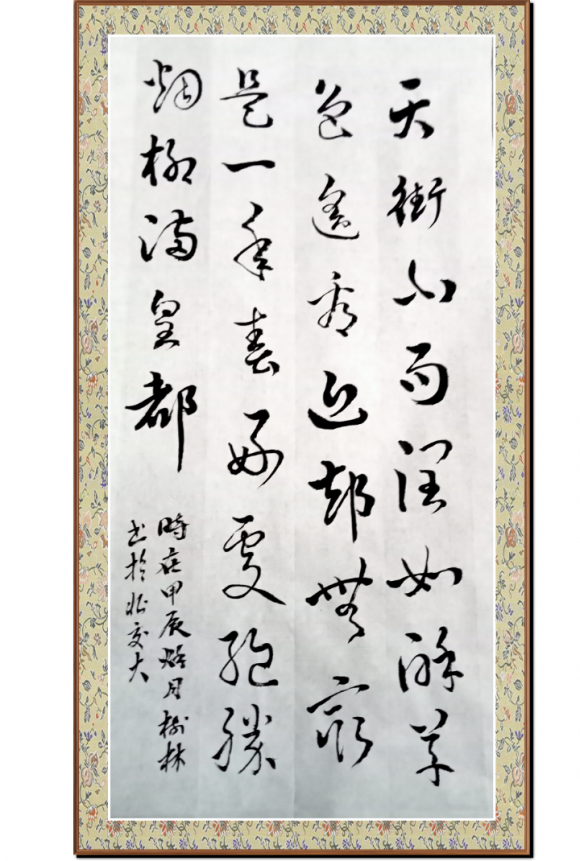 天街小雨润如酥草
色遥看近却無最
是一年春好處绝勝
烟柳满皇都
時在甲辰月樹林
书於北交大